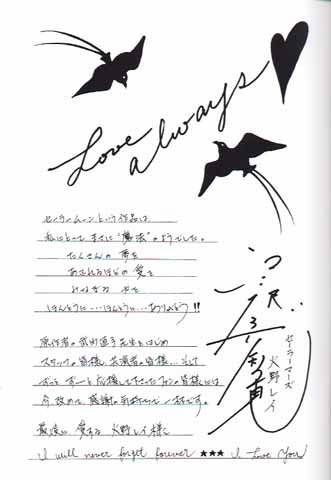 Love
always
セーラームーンという作品は、
私にとって まさに“魔法”のようでした。
たくさんの 夢を
あふれるほどの 愛を
ほんとうに…ほんとうに…ありがとう!!
原作者の武内直子先生をはじめ
スタッフの皆様、共演者の皆様…そして
ずっと ずーっと応援して下さったファンの皆様には
今 改めて 感謝の気持ちで 一杯です。
最後に 愛する 火野レイ様に
I will never forget forever ★★★ I Love You
セーラーマーズ
火野レイ